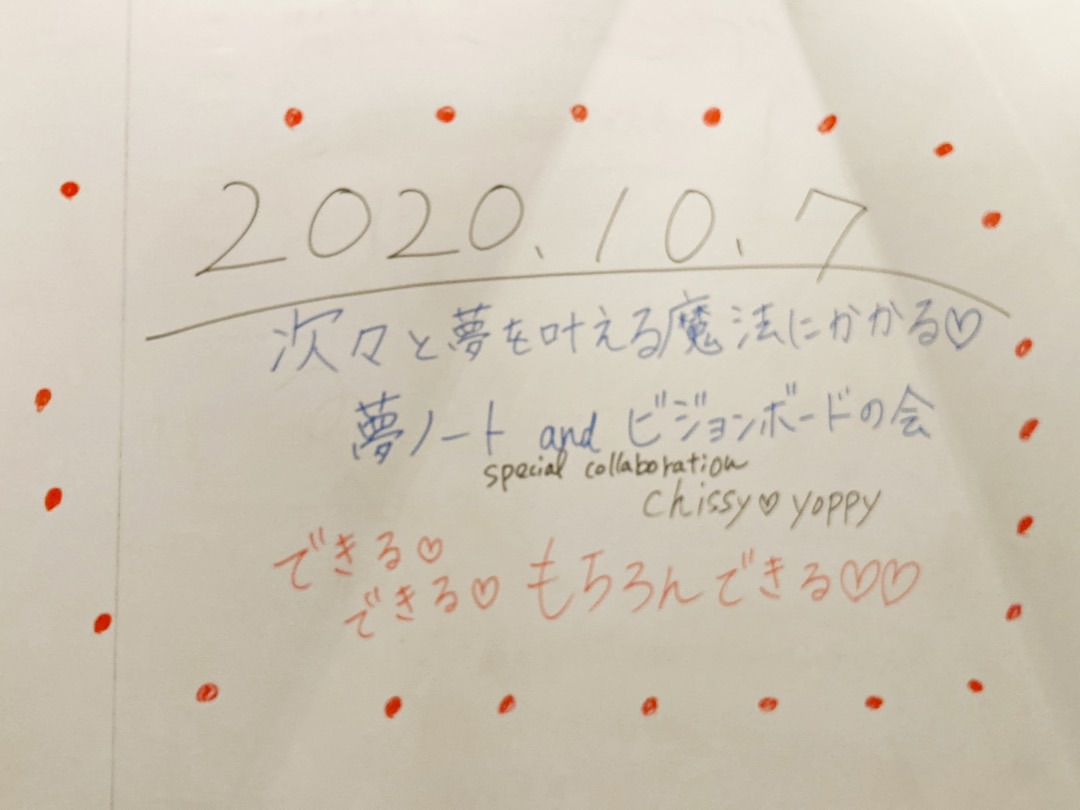 2020.10.7
次々と夢を叶える魔法にかかる♡
夢ノート and ビジョンボードの会
special collaboration
chissy♡yoppy
できる♡
できる♡ もちろんできる♡♡